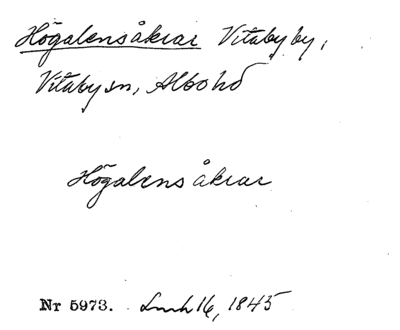 Högalensåkrar Vitaby by,
Vitaby sn, Albo hd
Högalens åkrar
Nr 5973. Lmh 16, 1845